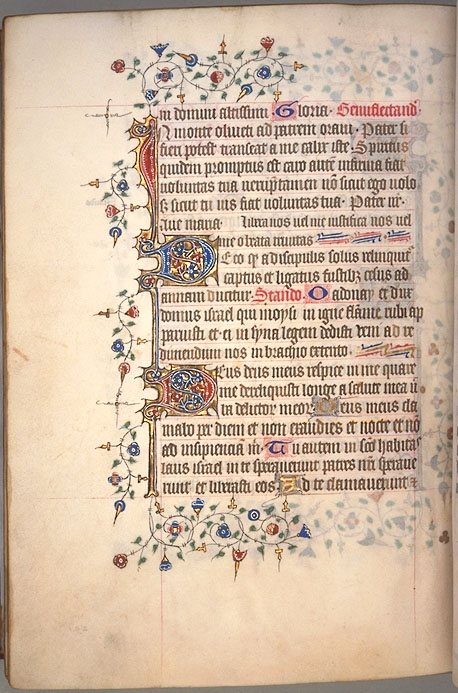 in domini altissimi Gloria. Genuflectand
In monte oliveti ad patrem oravi. Pater si
fieri potest transeat a me calix iste. Spiritus
quidem promptus est caro autem infirma fiat
voluntas tua verumptamen non sicut ego volo
sed sicut tu vis fiat voluntas tua. Pater nr.
Ave maria. libera nos vel me iustifica nos vel
me o beata trinitas
Ecce qd a discipulis solus relinquit
captus et ligatus fustibus cesus ad
annam ducitur. Stando. O adonay et dux
domus israel qui moysi in igne flamme rubi ap
paruisti et ei in syna legem dedisti veni ad re
dimendum nos in brachio extento.
Deus deus meus respice in me quare
me dereliquisti longe a salute mea v
ba delictor meor. Deus meus cla
mabo per diem et non exaudies et nocte et no
ad insipienciam m. Tu autem in sco habitas
laus israel in te speraverunt patres nri sperave
runt et liberasti eos. Ad te clamaverunt &